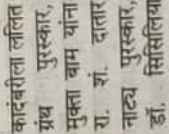 कादंबरीला ललित
ग्रंथ पुरस्कार,
मुक्ता बाम यांना
रा. शं. दातार
नाट्य पुरस्कार,
डॉ. सिसिलिया